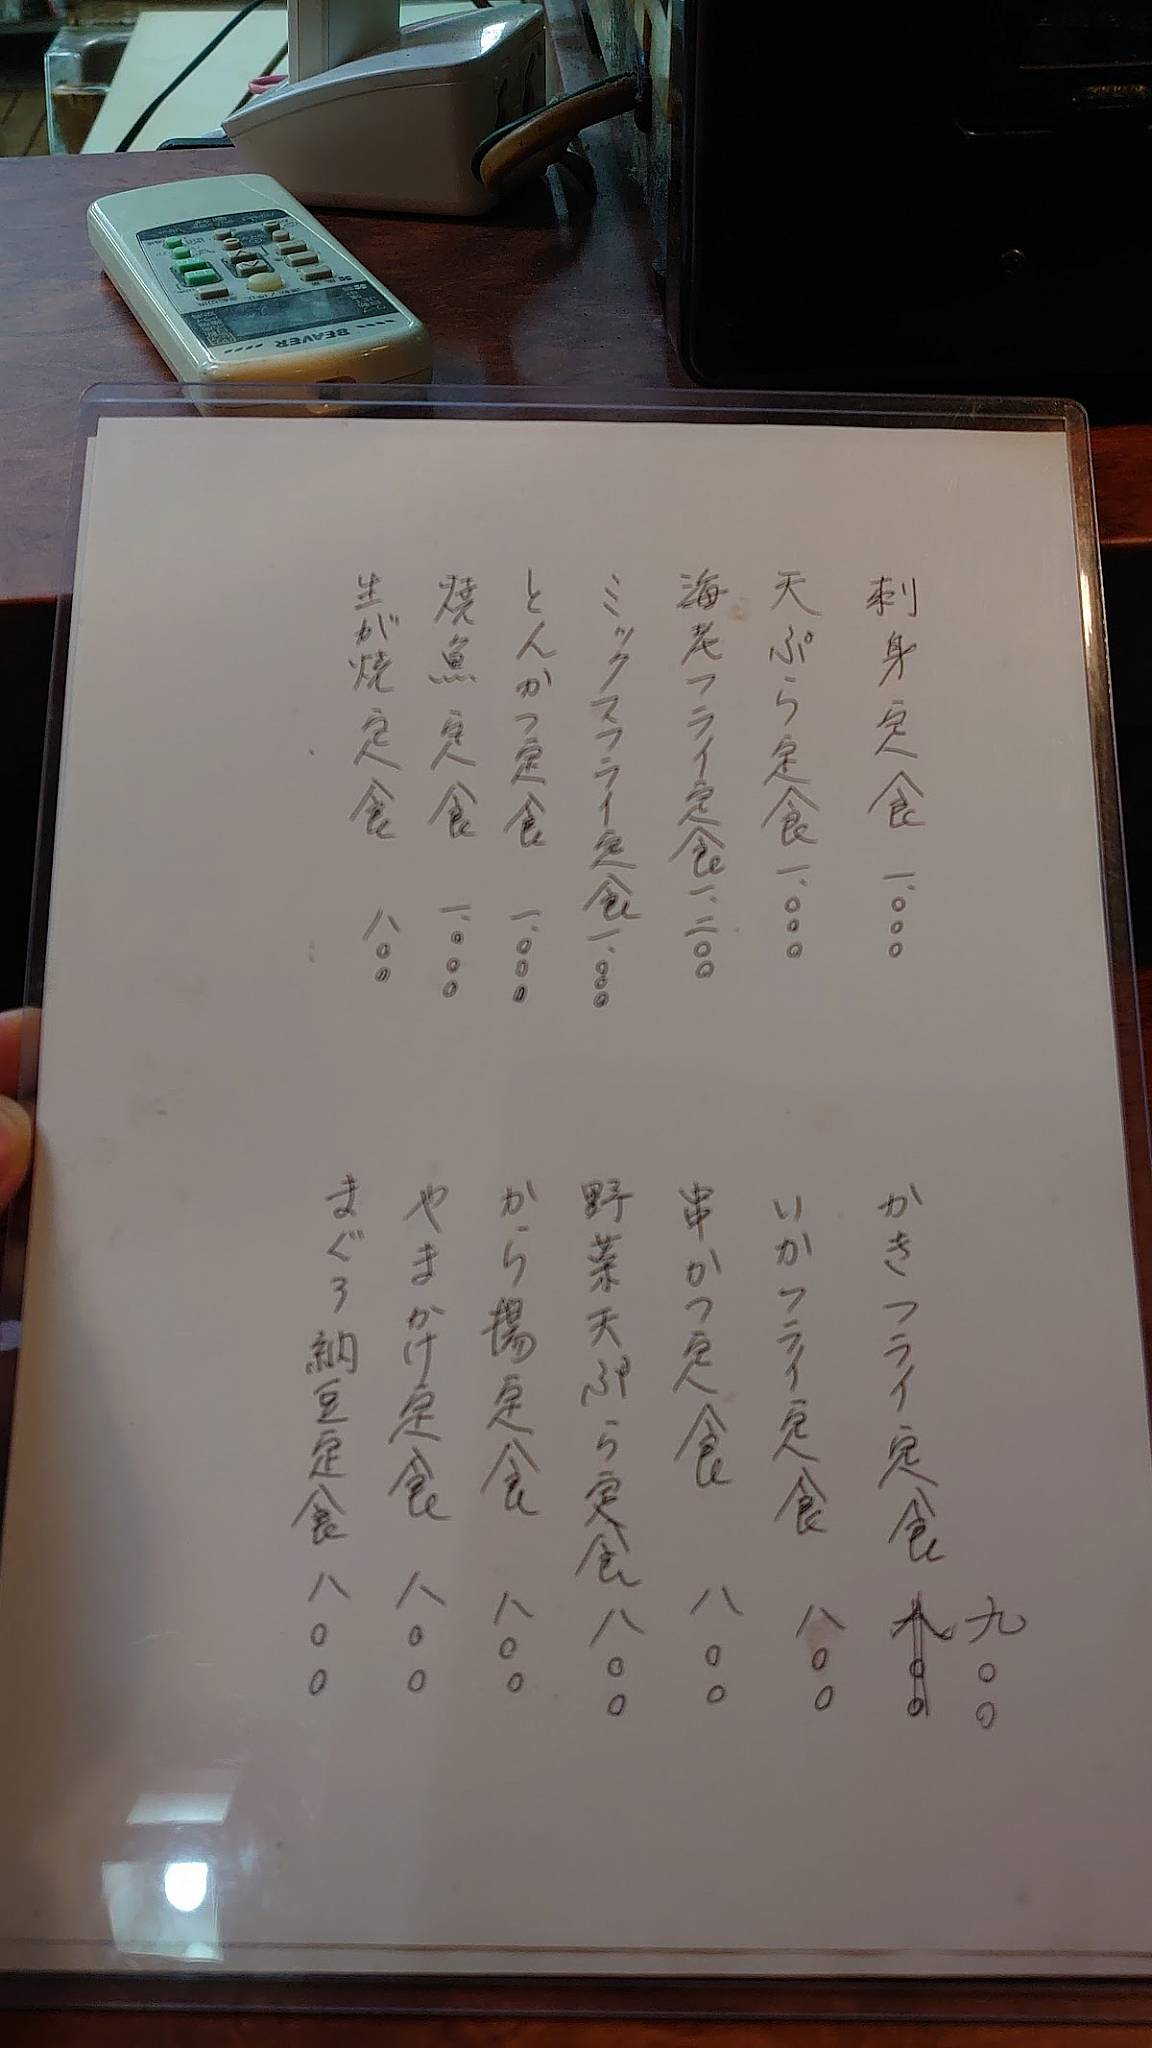 刺身定食 一、〇〇〇
天ぷら定食 一、〇〇〇
海老フライ定食 一、二〇〇
ミックスフライ定食 一、〇〇〇
とんかつ定食 一、〇〇〇
焼魚定食 一、〇〇〇
生が焼定食 八〇〇
九〇〇
かきフライ定食 八〇〇
いかフライ定食 八〇〇
串かつ定食 八〇〇
野菜天ぷら定食 八〇〇
から揚定食 八〇〇
やまかけ定食 八〇〇
まぐろ納豆定食 八〇〇
BEAVER